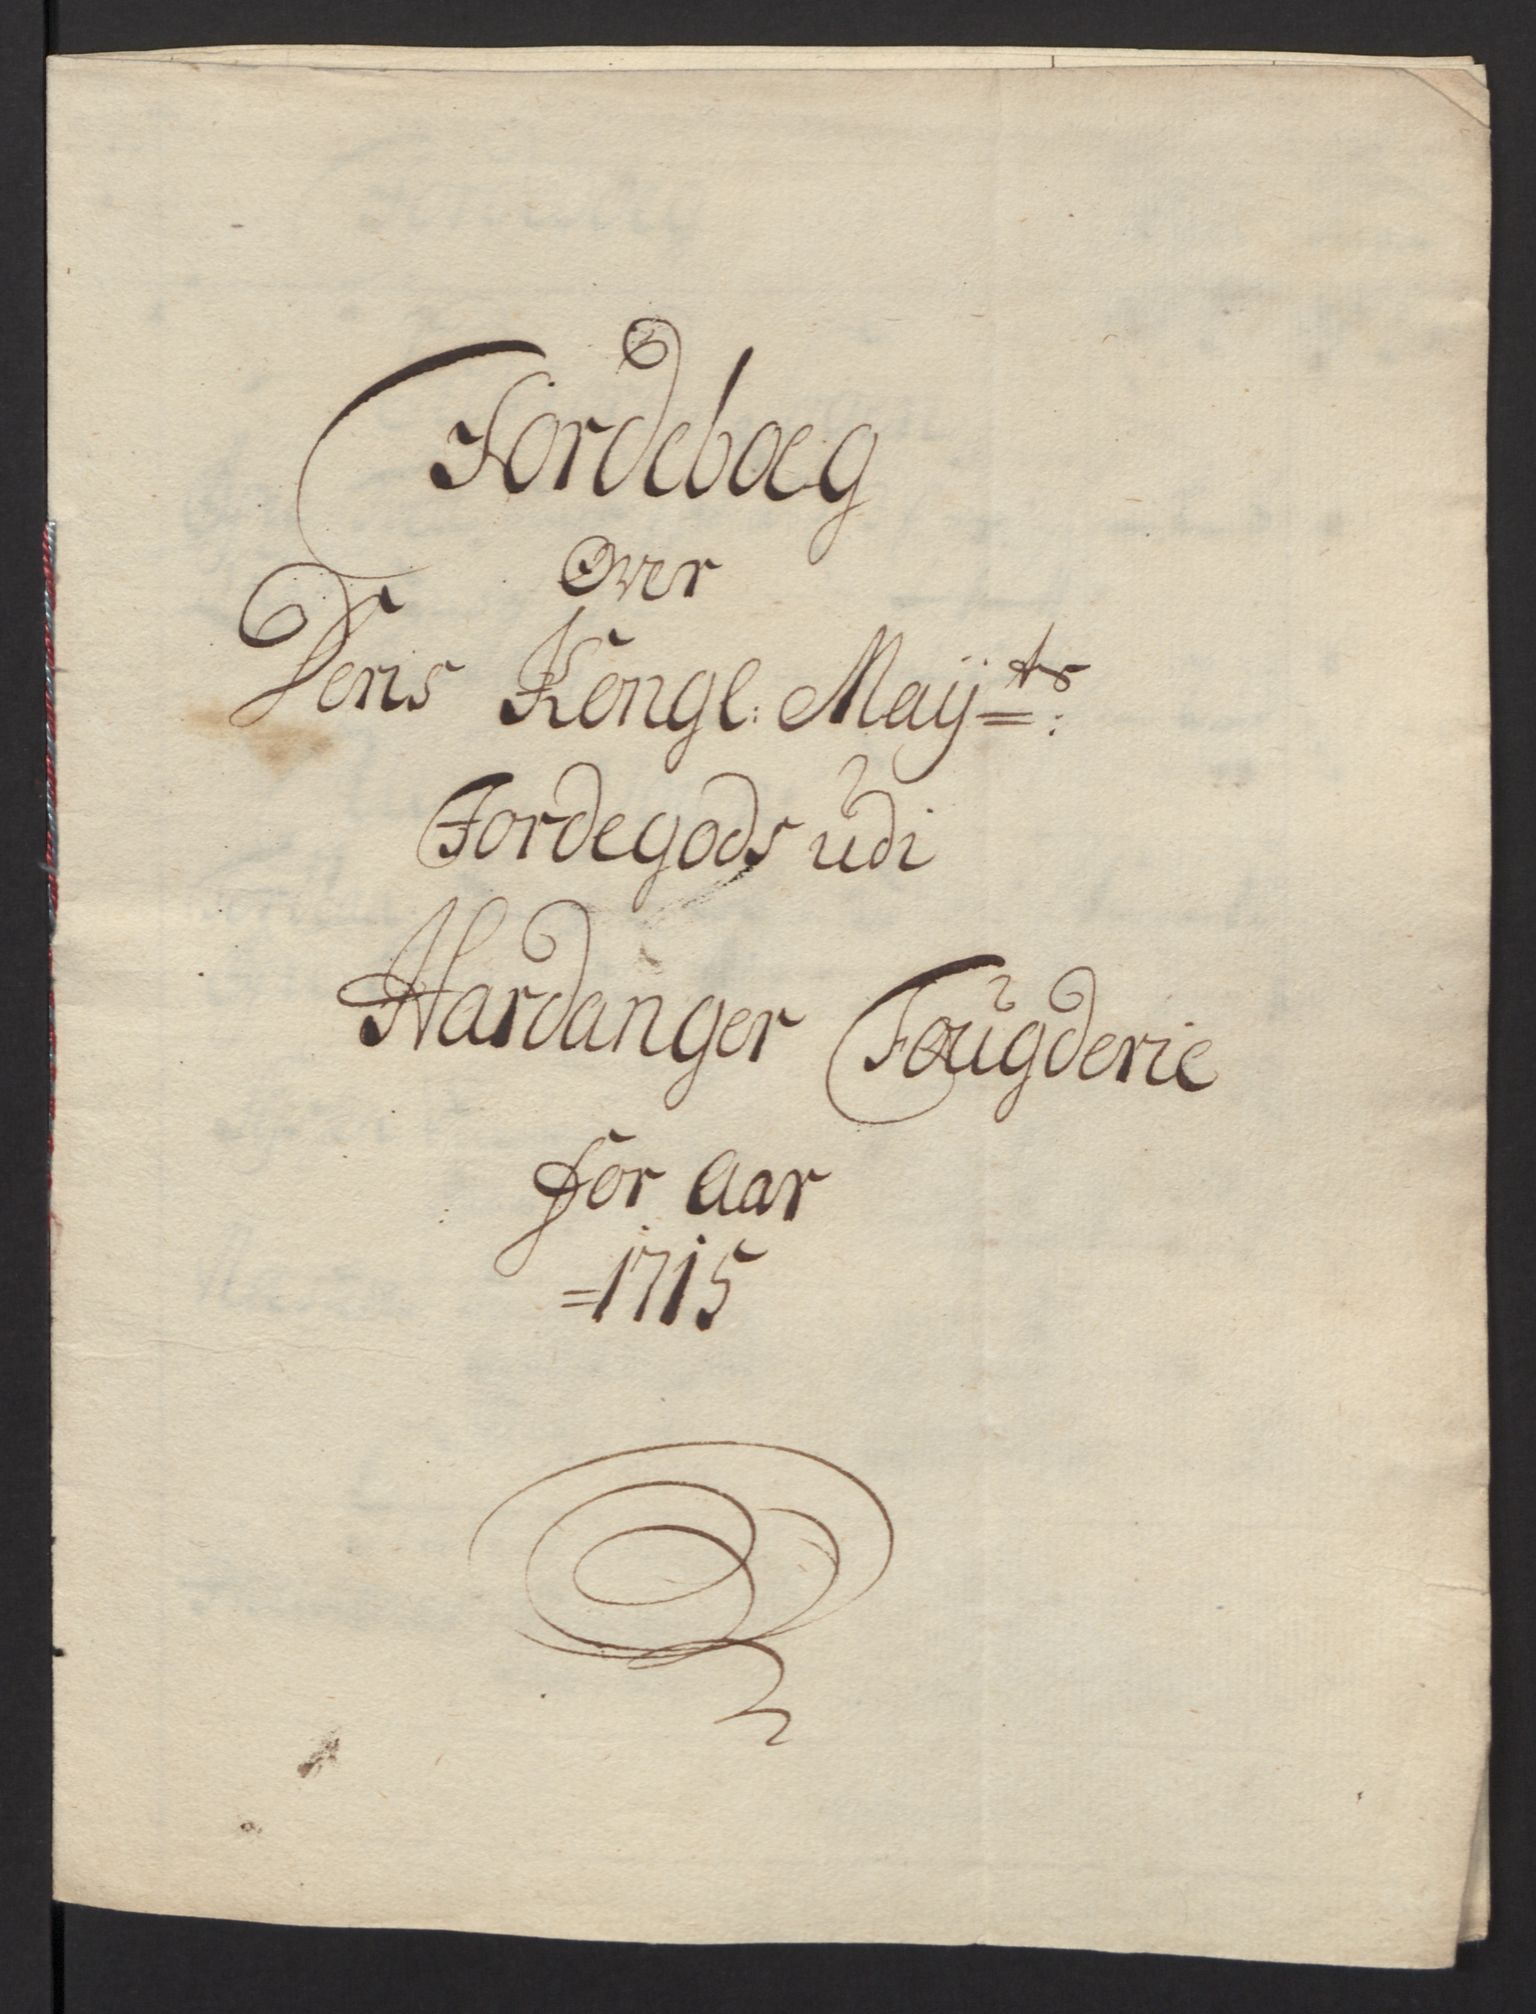 Jordeboeg
Over
Deris Kongl: Maÿts:
Jordegods udi
Hardanger Fougderie
for Aar
=1715